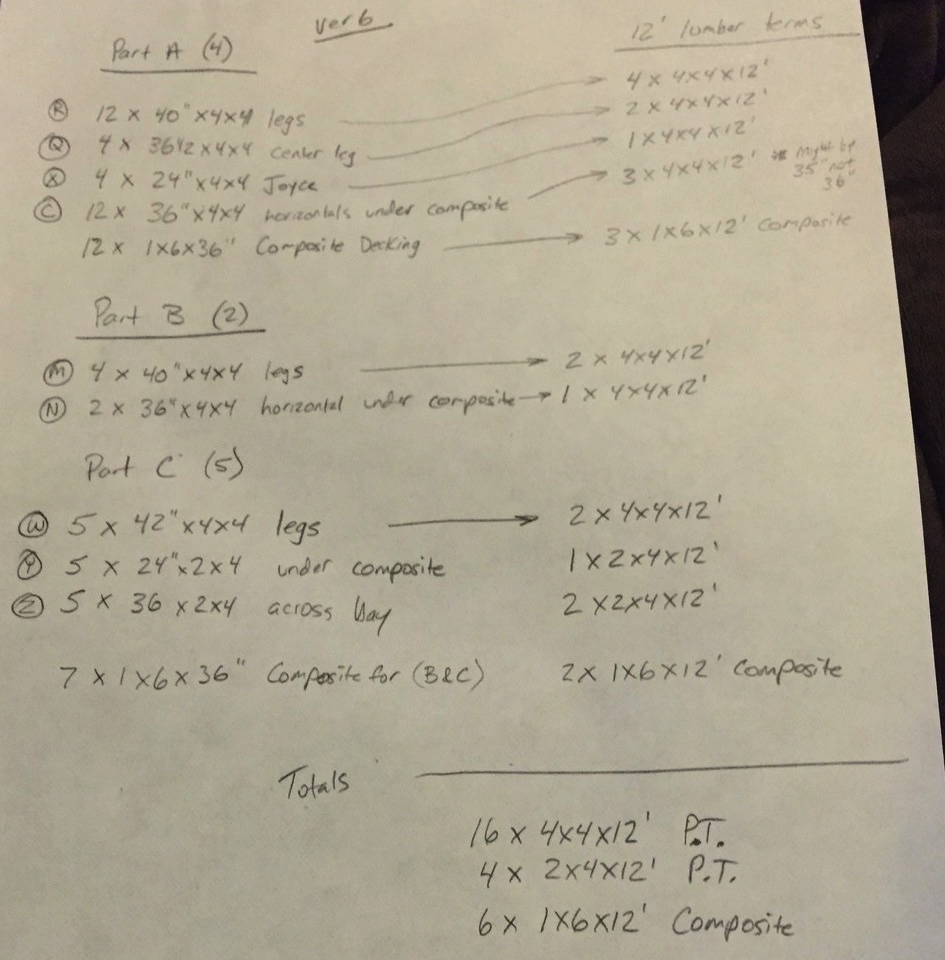 ver 6
Part A (4) 12' lumber terms
R 12 x 40" x4x4 legs → 4 x 4x4x12'
Q 4 x 36 1/2 x4x4 center leg → 2 x 4x4x12'
X 4 x 24" x4x4 Joyce → 1 x 4x4x12'
C 12 x 36" x4x4 horizontals under composite → 3 x 4x4x12' * Might be 35" not 36"
12 x 1x6x36" Composite Decking → 3 x 1x6x12' composite
Part B (2)
M 4 x 40" x4x4 legs → 2 x 4x4x12'
N 2 x 36" x4x4 horizontal under composite → 1 x 4x4x12'
Part C (5)
W 5 x 42" x4x4 legs → 2 x 4x4x12'
Y 5 x 24" x2x4 under composite 1 x 2x4x12'
Z 5 x 36 x2x4 across bay 2 x 2x4x12'
7 x 1x6x36" Composite for (B&C) 2 x 1x6x12' composite
Totals
16 x 4x4x12' P.T.
4 x 2x4x12' P.T.
6 x 1x6x12' Composite